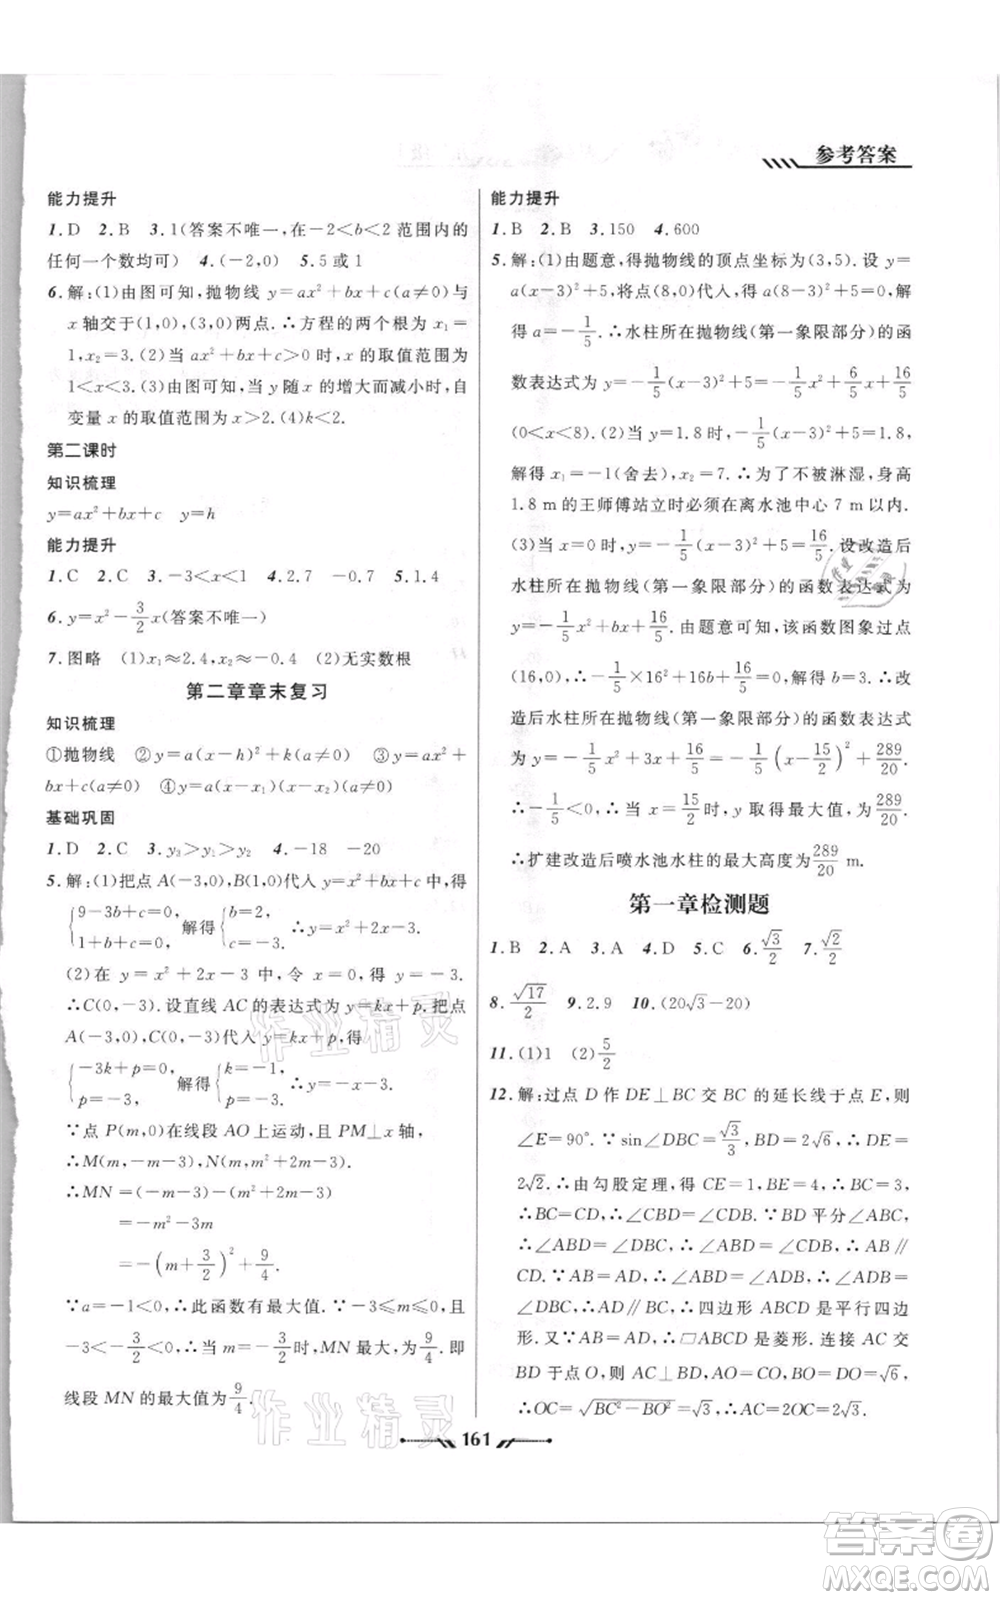 参考答案
能力提升
1. D  2. B  3. 1(答案不唯一,在-2<b<2范围内的
任何一个数均可)  4. (-2,0)  5. 5或1
6. 解:(1)由图可知,抛物线 y=ax²+bx+c(a≠0)与
x 轴交于(1,0),(3,0)两点.∴方程的两个根为 x₁=
1,x₂=3.(2)当 ax²+bx+c>0 时,x 的取值范围为
1<x<3.(3)由图可知,当 y 随 x 的增大而减小时,自
变量 x 的取值范围为 x>2.(4)k<2.
第二课时
知识梳理
y=ax²+bx+c  y=h
能力提升
1. C  2. C  3. -3<x<1  4. 2.7  -0.7  5. 1.4
6. y=x²-3/2x(答案不唯一)
7. 图略  (1)x₁≈2.4,x₂≈-0.4  (2)无实数根
第二章章末复习
知识梳理
①抛物线  ②y=a(x-h)²+k(a≠0)  ③y=ax²+
bx+c(a≠0)  ④y=a(x-x₁)(x-x₂)(a≠0)
基础巩固
1. D  2. C  3. y₃>y₁>y₂  4. -18  -20
5. 解:(1)把点 A(-3,0),B(1,0)代入 y=x²+bx+c,得
{9-3b+c=0, 1+b+c=0, 解得{b=2, c=-3. ∴y=x²+2x-3.
(2)在 y=x²+2x-3 中,令 x=0,得 y=-3.
∴C(0,-3).设直线 AC 的表达式为 y=kx+p.把点
A(-3,0),C(0,-3)代入 y=kx+p,得
{-3k+p=0, p=-3. 解得{k=-1, p=-3. ∴y=-x-3.
∵点 P(m,0)在线段 AO 上运动,且 PM⊥x 轴,
∴M(m,-m-3),N(m,m²+2m-3).
∴MN=(-m-3)-(m²+2m-3)
=-m²-3m
=-(m+3/2)²+9/4.
∵a=-1<0,∴此函数有最大值.∵-3≤m≤0,且
-3<-3/2<0,∴当 m=-3/2时,MN 最大,为9/4.即
线段 MN 的最大值为9/4.
能力提升
1. B  2. B  3. 150  4. 600
5. 解:(1)由题意,得抛物线的顶点坐标为(3,5).设 y=
a(x-3)²+5,将点(8,0)代入,得 a(8-3)²+5=0,解
得 a=-1/5.∴水柱所在抛物线(第一象限部分)的函
数表达式为 y=-1/5(x-3)²+5=-1/5x²+6/5x+16/5
(0<x<8).(2)当 y=1.8 时,-1/5(x-3)²+5=1.8,
解得 x₁=-1(舍去),x₂=7.∴为了不被淋湿,身高
1.8 m 的王师傅站立时必须在离水池中心 7 m 以内.
(3)当 x=0 时,y=-1/5(x-3)²+5=16/5.设改造后
水柱所在抛物线(第一象限部分)的函数表达式为
y=-1/5x²+bx+16/5.由题意可知,该函数图象过点
(16,0),∴-1/5×16²+16b+16/5=0,解得 b=3.∴改
造后水柱所在抛物线(第一象限部分)的函数表达式
为 y=-1/5x²+3x+16/5=-1/5(x-15/2)²+289/20.
∵-1/5<0,∴当 x=15/2时,y 取得最大值,为289/20.
∴扩建改造后喷水池水柱的最大高度为289/20 m.
第一章检测题
1. B  2. A  3. A  4. D  5. C  6. √3/2  7. √2/2
8. √17/2  9. 2.9  10. (20√3-20)
11. (1)1  (2)5/2
12. 解:过点 D 作 DE⊥BC 交 BC 的延长线于点 E,则
∠E=90°.∵sin∠DBC=√3/3,BD=2√6,∴DE=
2√2.∴由勾股定理,得 CE=1,BE=4,∴BC=3,
∴BC=CD,∴∠CBD=∠CDB.∵BD 平分∠ABC,
∴∠ABD=∠DBC,∴∠ABD=∠CDB,∴AB∥
CD.同理可得,AD∥BC,∴四边形 ABCD 是平行四边
形.又∵AB=AD,∴▱ABCD 是菱形.连接 AC 交
BD 于点 O,则 AC⊥BD,AO=CO,BO=DO=√6,
∴OC=√(BC²-BO²)=√3,∴AC=2OC=2√3.
161
作业精灵
作业精灵
答案卷
MXQE.COM